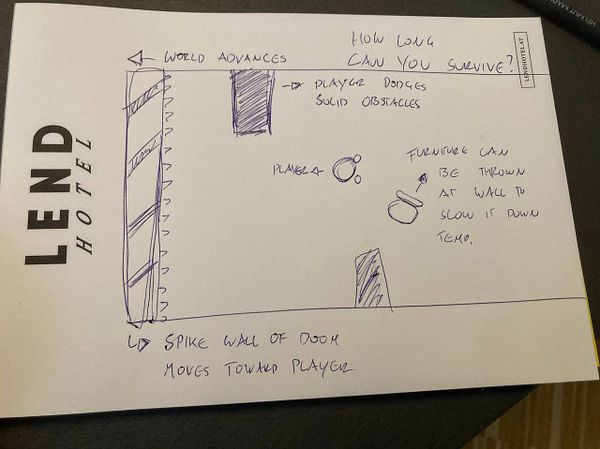 HOW LONG
CAN YOU SURVIVE?
LENDHOTEL.AT
WORLD ADVANCES
PLAYER DODGES
SOLID OBSTACLES
LEND
HOTEL
PLAYER
FURNITURE CAN
BE THROWN
AT WALL TO
SLOW IT DOWN
TEMP.
SPIKE WALL OF DOOM
MOVES TOWARD PLAYER